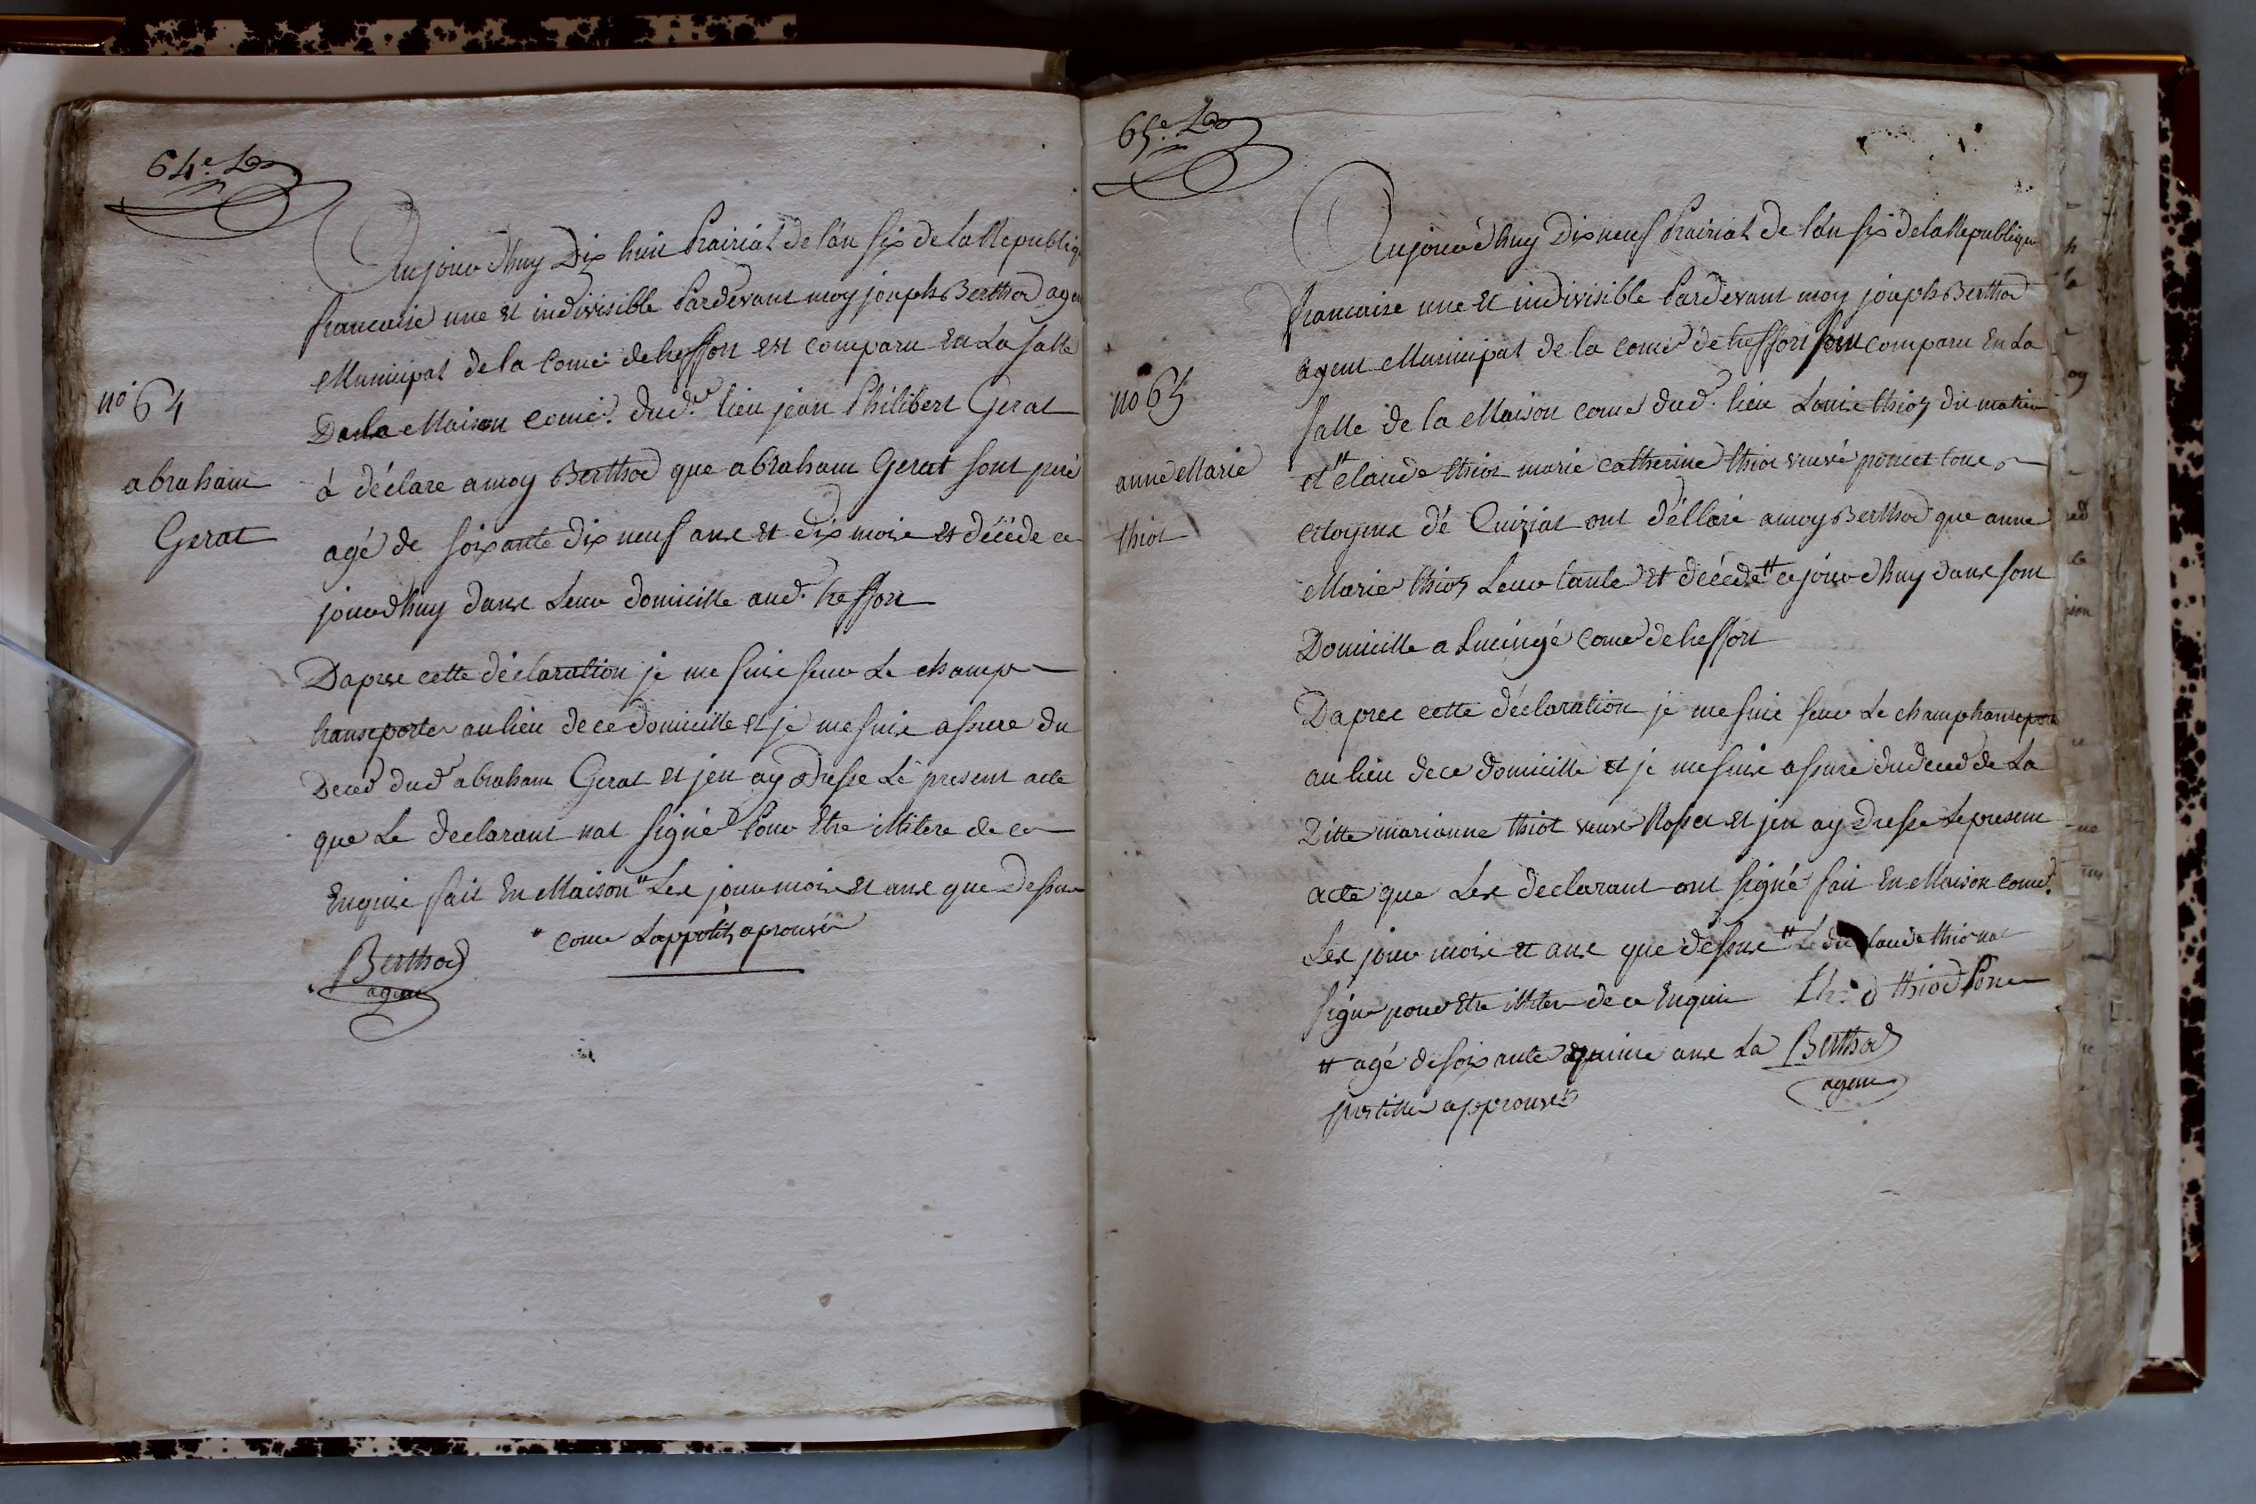 64e
Aujourdhuy Dix huit Prairial de l'an six de la Republique
francaise une et indivisible Pardevant moy joseph Berthod agent
Municipal de la Comé de treffort est comparu En La Salle
De la Maison Comé. dud. lieu jean Philibert Gerat
n° 64
abraham
Gerat
à déclare a moy Berthod que abraham Gerat sont peré
agé de soixante dix neuf ans et dix mois et décéde ce
jourdhuy dans Leur domicille aud. treffort
Dapres cette déclaration je me suis seur Le champ
transporter au lieu de ce domicille et je me suis assure du
Deced dud abraham Gerat et jen ay Dresse Le present acte
que Le declarant nat signé Pour Etre illitere de ce
Enquis fait En Maison " Les jour mois Et ans que Dessus
" Come Lappotils aprouvée
Berthod
agent
65e
Aujourdhuy Dix neuf Prairial de l'an six de la Republique
francaise une et indivisible Pardevant moy joseph Berthod
agent Municipal de la Come de treffort sont comparu En La
salle de la Maison Come dud. lieu Louis thiot dit
n° 65
anne Marie
thiot
et " claude thiot marie catherine thiot veuve poncet tous
citoyens dé Cuiziat ont déllaré a moy Berthod que anne
Marie thiot Leur tante et décéde " ce jourdhuy dans sont
Domicille a Lucingé Come de treffort
Dapres cette déclaration je me suis seur Le champ transporte
au lieu de ce domicille et je me suis assuré du deced de La
Ditte marianne thiot veuve Rosset et jen ay Dresse Le present
acte que Les declarant ont signé fait En Maison Comé.
Les jour mois et ans que dessus " Le dit claude thiot nat
signe pour Etre illiter de ce Enquis thiod
" agé de soixante quinze ans La Berthod
postille approuvé agent